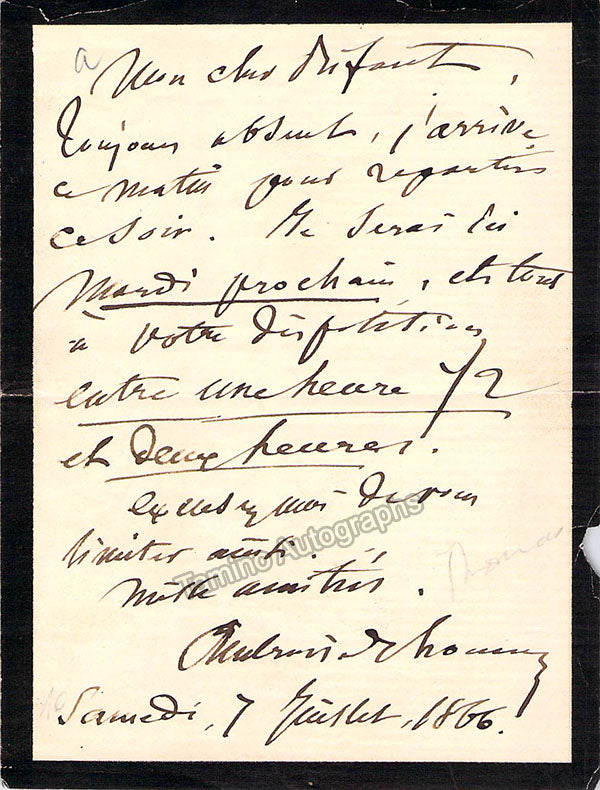 a
Mon cher Dufaut,
Toujours absent, j'arrive
ce matin pour repartir
ce soir. Je serai ici
Mardi prochain, et tout
à votre disposition
entre une heure 1/2
et deux heures.
excusez moi de vous
limiter ainsi.
mille amitiés.
Ambroise Thomas
Samedi, 7 Juillet, 1866.
Thomas
Tamino Autographs